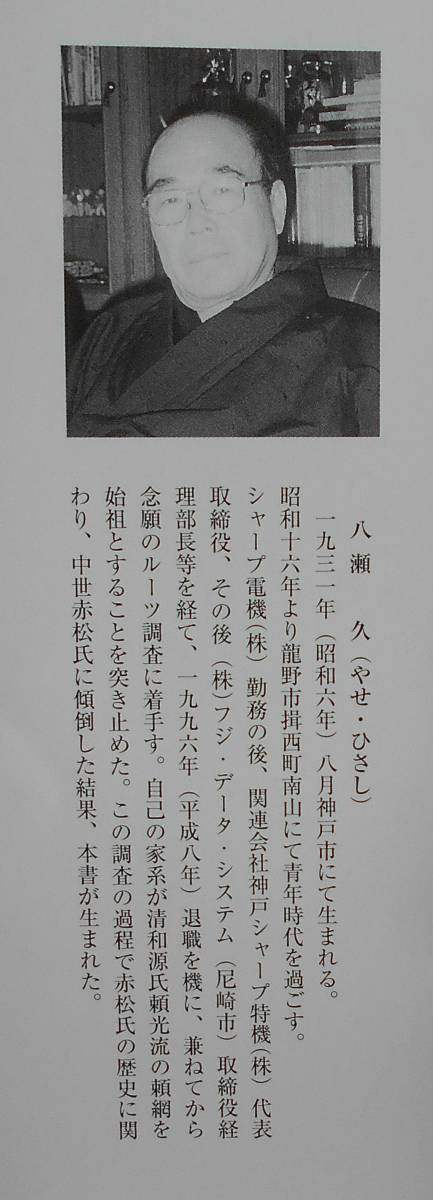 八瀬　久（やせ・ひさし）
一九三一年（昭和六年）八月神戸市にて生まれる。
昭和十六年より龍野市揖西町南山にて青年時代を過ごす。
シャープ電機（株）勤務の後、関連会社神戸シャープ特機（株）代表
取締役、その後（株）フジ・データ・システム（尼崎市）取締役経
理部長等を経て、一九九六年（平成八年）退職を機に、兼ねてから
念願のルーツ調査に着手す。自己の家系が清和源氏頼光流の頼網を
始祖とすることを突き止めた。この調査の過程で赤松氏の歴史に関
わり、中世赤松氏に傾倒した結果、本書が生まれた。